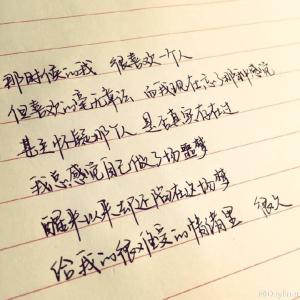 那时候的我 很喜欢一个人
但喜欢的毫无章法 而我现在忘了那种感觉
甚至怀疑那个人 是否真实存在过
我总感觉自己做了场噩梦
醒来以来却还陷在这场梦
给我的很难受的情绪里 很久